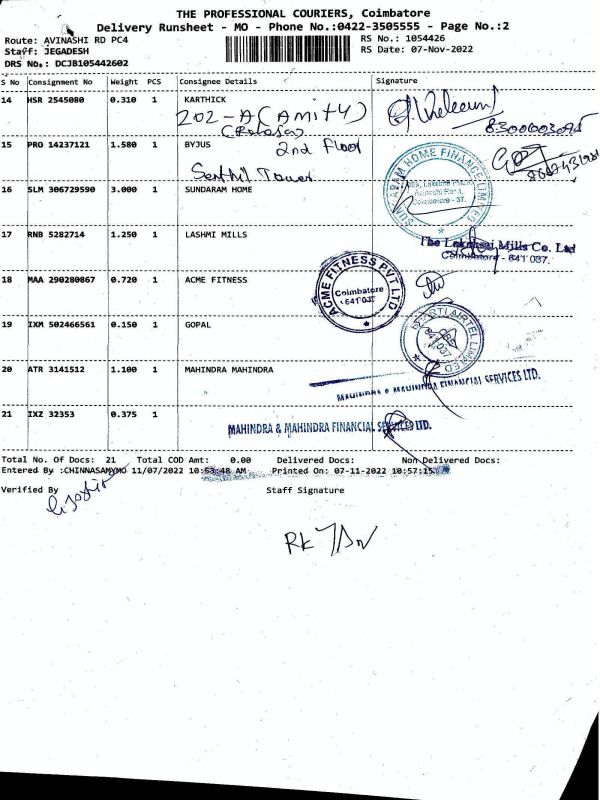 THE PROFESSIONAL COURIERS, Coimbatore
Delivery Runsheet - MO - Phone No.:0422-3505555 - Page No.:2
Route: AVINASHI RD PC4 RS No.: 1054426
Staff: JEGADESH RS Date: 07-Nov-2022
DRS No.: DCJB105442602
S No Consignment No Weight PCS Consignee Details Signature
14 HSR 2545080 0.310 1 KARTHICK
202-A (Amity)
15 PRO 14237121 1.580 1 BYJUS
2nd Floor
Senthil Tower
16 SLM 306729590 3.000 1 SUNDARAM HOME
SUNDARAM HOME FINANCE LIMITED
Coimbatore - 37.
17 RNB 5282714 1.250 1 LASHMI MILLS
The Lakshmi Mills Co. Ltd
Coimbatore - 641 037.
18 MAA 290280867 0.720 1 ACME FITNESS
ACME FITNESS PVT LTD
Coimbatore
641 037
19 IXM 502466561 0.150 1 GOPAL
BHARTI AIRTEL LIMITED
641 037
20 ATR 3141512 1.100 1 MAHINDRA MAHINDRA
MAHINDRA & MAHINDRA FINANCIAL SERVICES LTD.
21 IXZ 32353 0.375 1
MAHINDRA & MAHINDRA FINANCIAL SERVICES LTD.
Total No. Of Docs: 21 Total COD Amt: 0.00 Delivered Docs: Non-Delivered Docs:
Entered By :CHINNASAMYMO 11/07/2022 10:53:48 AM Printed On: 07-11-2022 10:57:15
Verified By Staff Signature